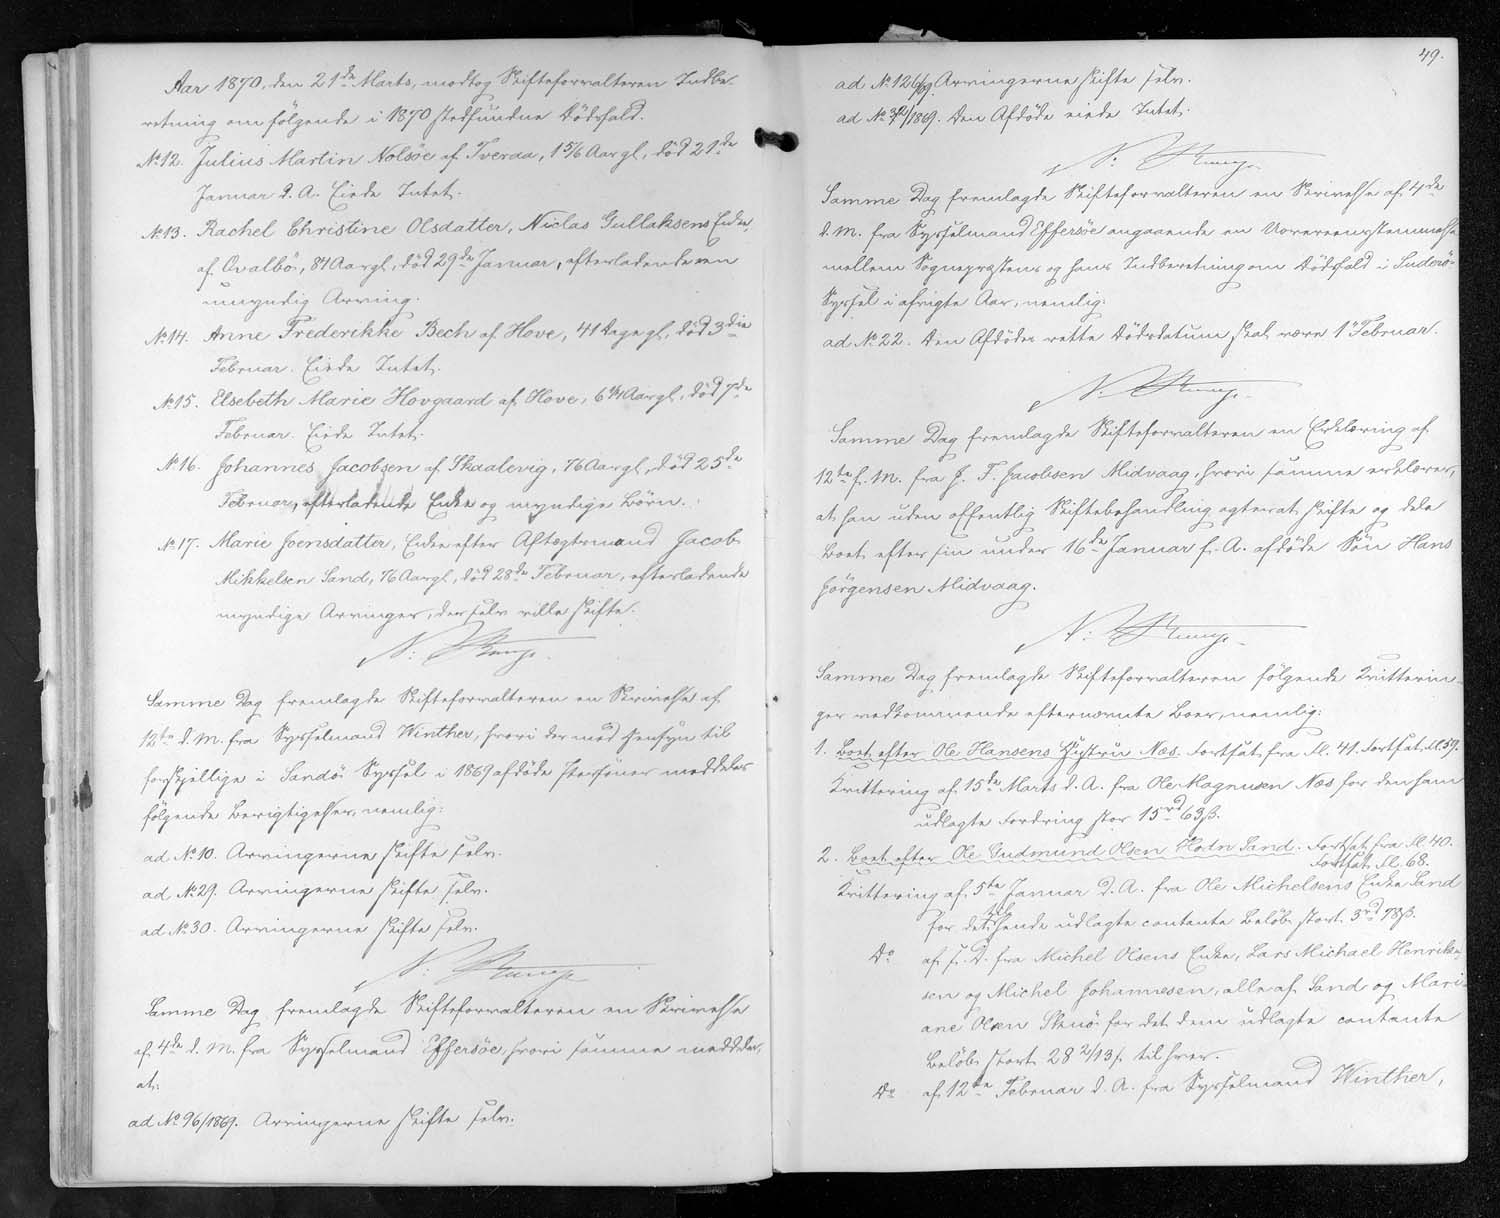 Aar 1870, den 21de Marts, modtog Skifteforvalteren Indbe-
retning om følgende i 1870 stedfundne Dødsfald.
No 12. Julius Martin Nolsøe af Tveraa, 1 5/6 Aar gl., død 21de
Januar d. A. Eiede Intet.
No 13. Rachel Christine Olsdatter, Niclas Gullaksens Enke,
af Qvalbö, 84 Aar gl., död 29de Januar, efterladende en
umyndig Arving.
No 14. Anne Frederikke Bech af Hove, 41 Dage gl., död 3die
Februar. Eiede Intet.
No 15. Elsebeth Marie Hovgaard af Hove, 6 Aar gl., död 7de
Februar. Eiede Intet.
No 16. Johannes Jacobsen af Skaalevig, 76 Aar gl., död 25de
Februar, efterladende Enke og myndige Börn.
No 17. Marie Joensdatter, Enke efter Aftægtsmand Jacob
Mikkelsen Sand, 76 Aar gl., död 28de Februar, efterladende
myndige Arvinger, der selv ville skifte.
N.
Samme Dag fremlagde Skifteforvalteren en Skrivelse af
12te d. M. fra Sysselmand Winther, hvori der med Hensyn til
forskjellige i Sandö Syssel i 1869 afdöde Personer meddeles
fölgende Berigtigelser, nemlig:
ad No 10. Arvingerne skifte selv.
ad No 29. Arvingerne skifte selv.
ad No 30. Arvingerne skifte selv.
N.
Samme Dag fremlagde Skifteforvalteren en Skrivelse
af 4de d. M. fra Sysselmand Effersöe, hvori samme meddeler,
at:
ad No 96/1869. Arvingerne skifte selv.
49.
ad No 126/69. Arvingerne skifte selv.
ad No /1869. Den Afdöde eiede Intet.
N.
Samme Dag fremlagde Skifteforvalteren en Skrivelse af 4de
d. M. fra Sysselmand Effersöe angaaende en Uovereensstemmelse
mellem Sognepræstens og hans Indberetning om Dödsfald i Suderö
Syssel i afvigte Aar, nemlig:
ad No 22. Den Afdödes rette Dödsdatum skal være 1 Februar.
N.
Samme Dag fremlagde Skifteforvalteren en Erklæring af
12te f. M. fra J. F. Jacobsen Midvaag, hvori samme erklærer,
at han uden offentlig Skiftebehandling agter at skifte og dele
Boet efter sin under 16de Januar f. A. afdöde Sön Hans
Jörgensen Midvaag.
N.
Samme Dag fremlagde Skifteforvalteren fölgende Kvitterin-
ger vedkommende efternævnte Boer, nemlig:
1. Boet efter Ole Hansens Hustru Næs. Fortsat fra Fl. 41. Fortsat Fl. 59.
Kvittering af 15de Marts d. A. fra Ole Magnusen Næs for den ham
udlagte Fordring stor 15rd 63 ß.
2. Boet efter Ole Gudmund Olsen Sand. Fortsat fra Fl. 40.
Fortsat Fl. 68.
Kvittering af 5te Januar d. A. fra Ole Michelsens Enke Sand
for det hende udlagte contante Belöb stort 3rd 78 ß.
Do af s. D. fra Michel Olsens Enke, Lars Michael Henrik-
sen og Michel Johannesen, alle af Sand og Mari-
ane Olsen Skuö for det dem udlagte contante
Belöb stort 28 2/13 ß til hver.
Do af 12te Februar d. A. fra Sysselmand Winther,